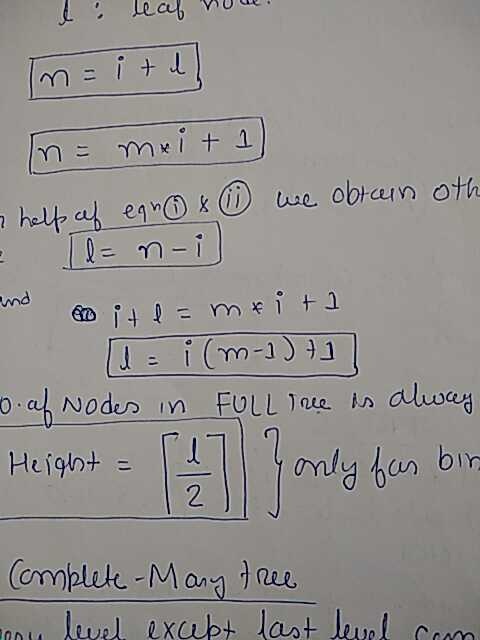 l : leaf node.
n = i + l
n = m*i + 1
help of eqn (i) & (ii) we obtain oth
l = n - i
and i + l = m * i + 1
l = i (m-1) + 1
o. of Nodes in FULL Tree is alway
Height = ⌈l/2⌉ } only for bin
Complete - Mary tree
level except last level can